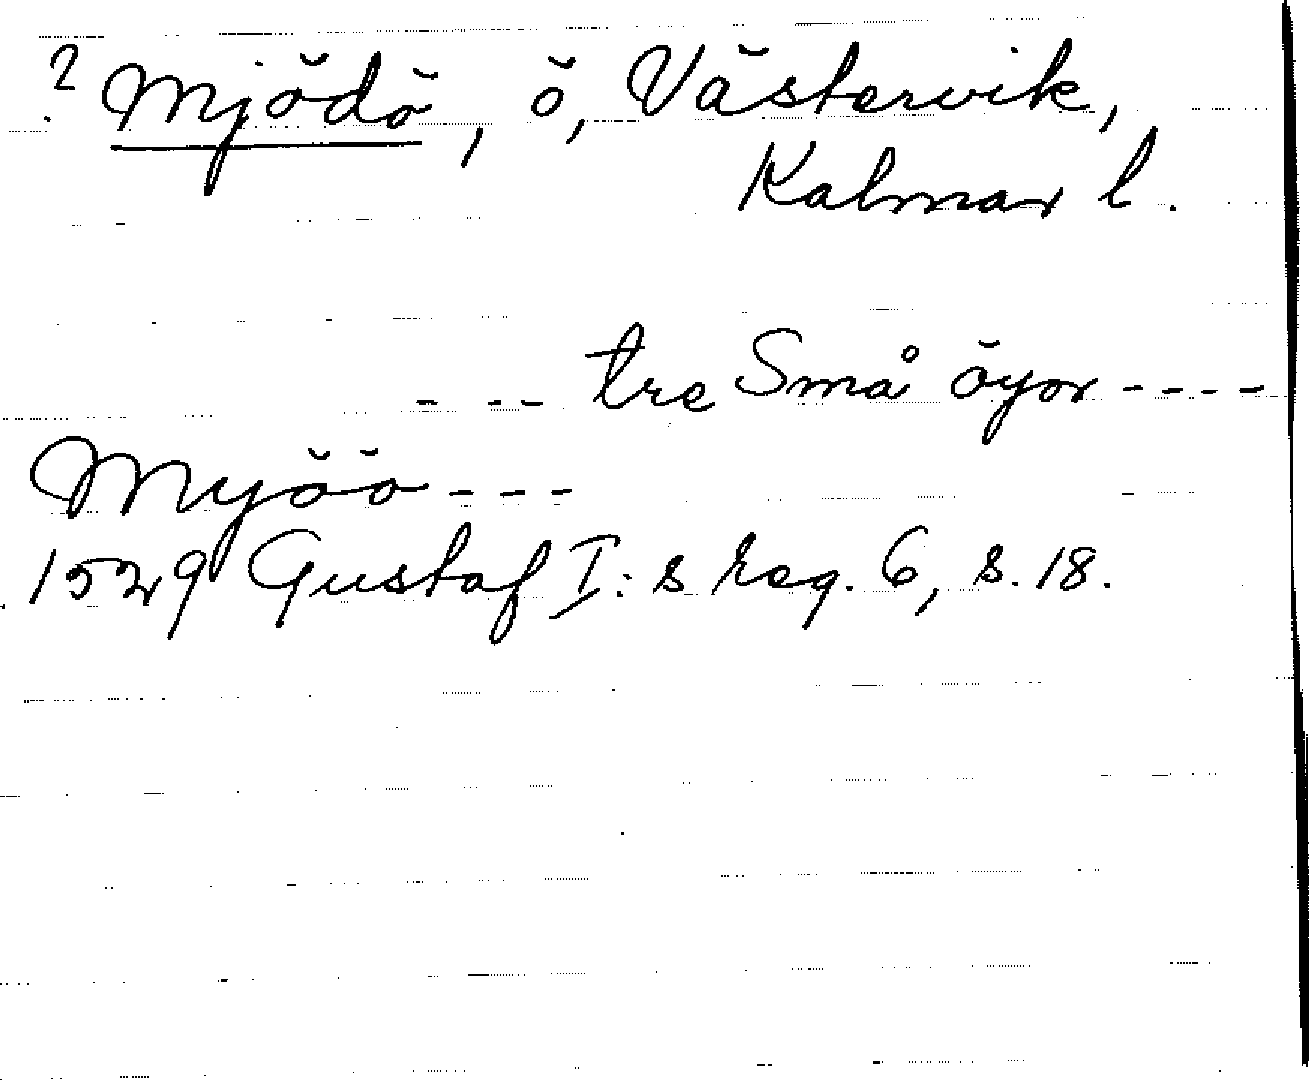 ? Mjödö, ö, Västervik,
Kalmar l.
- -- tre Små öyor ----
Myöö ---
1529 Gustaf I:s reg. 6, s. 18.